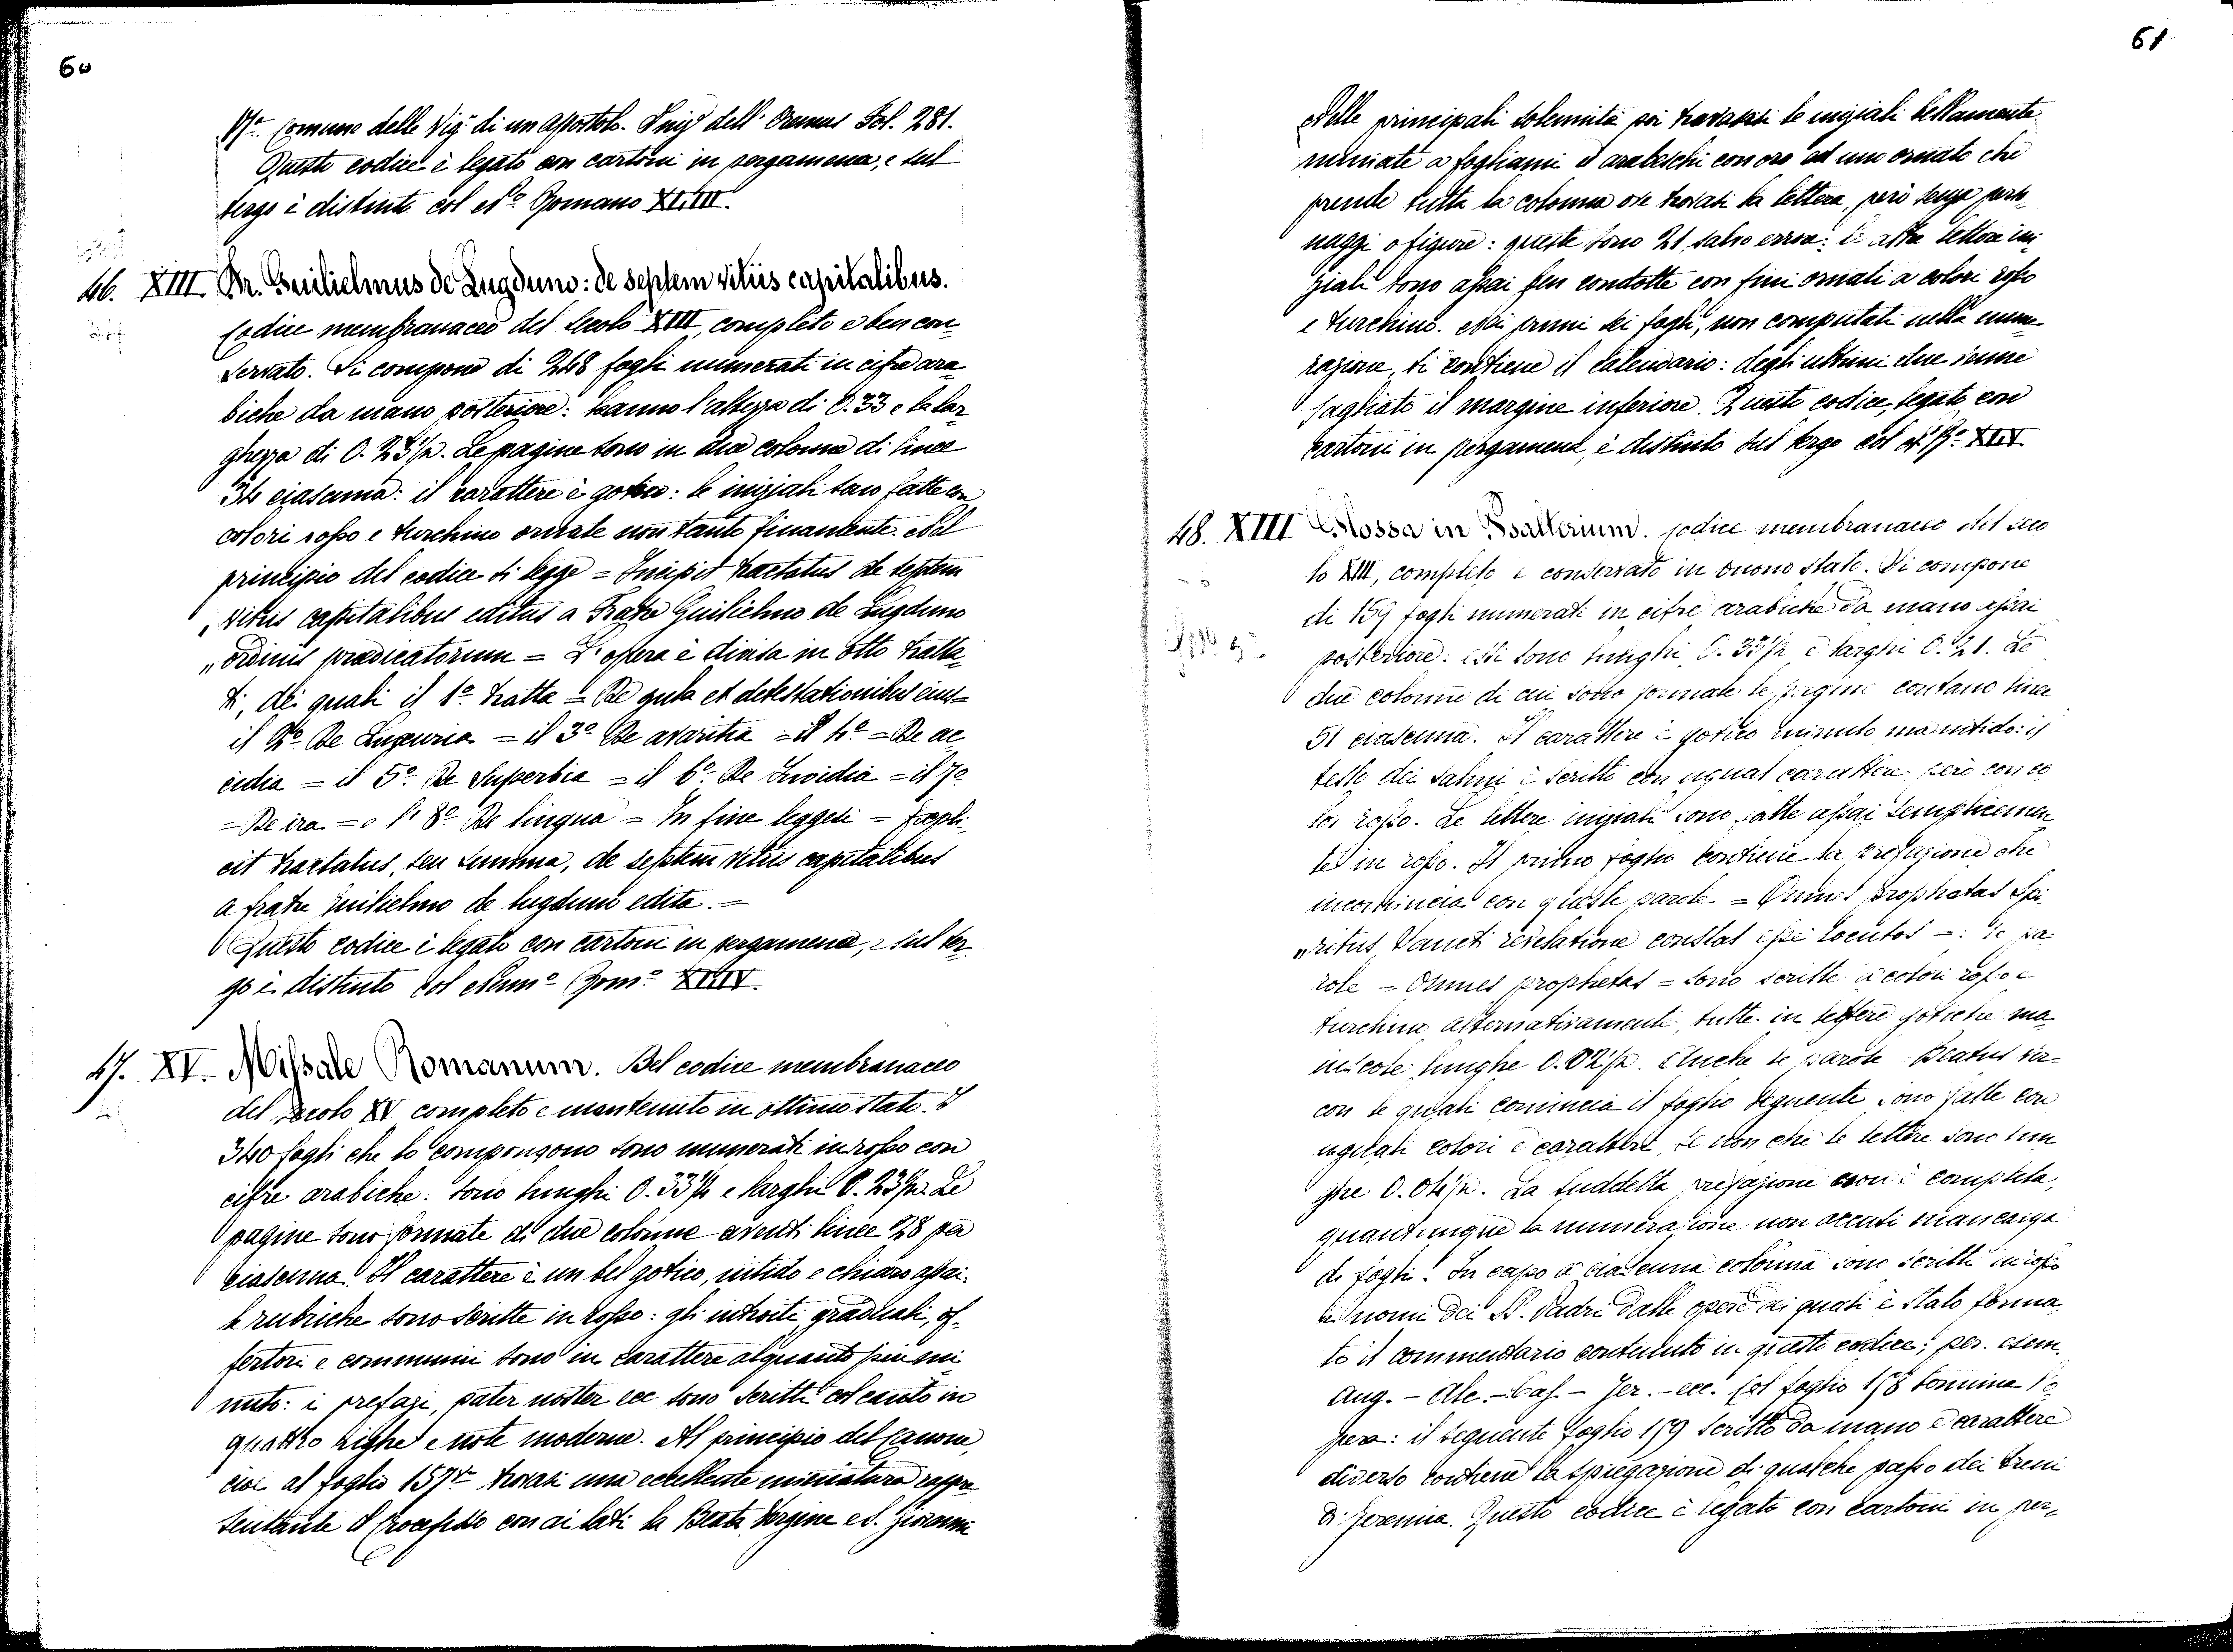 60
N.º Comune delle Vig. di un Apostolo. Iniz. dell' Oremus Fol. 281.
Questo codice è legato con cartoni in pergamena, e sul
tergo è distinto col Nº Romano XLIII.
46. XIII Fr. Guilielmus de Lugduno: de septem vitiis capitalibus.
Codice membranaceo del Secolo XIII, completo e ben con
servato. Si compone di 248 fogli numerati in cifre ara
biche da mano posteriore: hanno l'altezza di 0.33 e la lar
ghezza di 0.23½. Le pagine sono in due colonne di linee
34 ciascuna: il carattere è gotico: le iniziali sono fatte con
colori rosso e turchino ornate non tanto finamente. Nel
principio del codice si legge = Incipit tractatus de septem
„ vitiis capitalibus editus a Fratre Guilielmo de Lugduno
„ ordinis praedicatorum = L'opera è divisa in otto tratta
ti, dei quali il 1º tratta = De gula et detestationibus eius =
il 2º De Luxuria = il 3º De avaritia = il 4º = De ac
cidia = il 5º De Superbia = il 6º De Invidia = il 7º
= De ira = e l' 8º De lingua = In fine leggesi = Expli
cit tractatus, seu summa, de septem vitiis capitalibus
a fratre Guilielmo de lugduno edita. =
Questo codice è legato con cartoni in pergamena, e sul ter
go è distinto col Numº Romº XLIV.
47. XV. Missale Romanum. Bel codice membranaceo
del secolo XV completo e mantenuto in ottimo stato. I
340 fogli che lo compongono sono numerati in rosso con
cifre arabiche: sono lunghi 0.33½ e larghi 0.23½. Le
pagine sono formate di due colonne aventi linee 28 per
ciascuna. Il carattere è un bel gotico, nitido e chiaro assai.
le rubriche sono scritte in rosso: gli introiti, graduali, of-
fertori e communii sono in carattere alquanto più mi
nuto: i prefazi, pater noster ecc sono scritti col canto in
quattro righe e note moderne. Al principio del Canone,
cioè al foglio 157 trovasi una eccellente miniatura rappre
sentante il Crocefisso con ai lati la Beata Vergine e S. Giovanni
61
Nelle principali solennità poi trovansi le iniziali bellamente
miniate a fogliami ed arabeschi con oro ed uno ornato che
prende tutta la colonna ove trovasi la lettera, però senza perso
naggi o figure: queste sono 21, salvo errore: le altre lettere ini
ziali sono assai ben condotte con fini ornati a colori rosso
e turchino. Nei primi sei fogli, non computati nella nume
razione, si contiene il Calendario: degli ultimi due venne
tagliato il margine inferiore. Questo codice, legato con
cartoni in pergamena, è distinto sul tergo col Nº Rº XLV.
48. XIII Glossa in Psalterium. Codice membranaceo del seco
lo XIII, completo e conservato in buono stato. Si compone
di 159 fogli numerati in cifre arabiche da mano assai
posteriore: essi sono lunghi 0.33½ e larghi 0.21. Le
due colonne di cui sono formate le pagine contano linee
51 ciascuna. Il carattere è gotico minuto, ma nitido: il
testo dei salmi è scritto con ugual carattere però con co
lor rosso. Le lettere iniziali sono fatte assai semplicemen
te in rosso. Il primo foglio contiene la prefazione che
incomincia con queste parole = Omnes prophetas Spi
„ritus Sancti revelatione constat esse locutos =: le pa
role = Omnes prophetas = sono scritte a colori rosso e
turchino alternativamente, tutte in lettere gotiche ma
iuscole lunghe 0.02½. Anche le parole Beatus vir =
con le quali comincia il foglio seguente sono fatte con
uguali colori e carattere, se non che le lettere sono lun
ghe 0.04½. La suddetta prefazione non è completa,
quantunque la numerazione non accusi mancanza
di fogli. In capo a ciascuna colonna sono scritti in rosso
i nomi dei SS. Padri dalle opere dei quali è stato forma
to il commentario contenuto in questo codice; per. esem.
Aug. - Ale. - Cas. - Jer. - ecc. Col foglio 158 termina l'o
pera: il seguente foglio 159 scritto da mano e carattere
diverso contiene la spiegazione di qualche passo dei treni
di Jeremia. Questo codice è legato con cartoni in per-